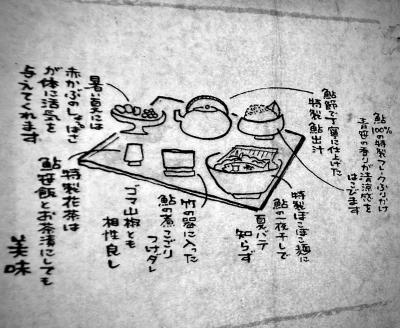 鮎100%の特製フレークふりかけ
青笹の香りが清涼感を
はこびます
鮎節で丁寧に仕上げた
特製鮎出汁
特製ぽこぽこ麺に
鮎の一夜干しで
夏バテ
知らず
竹の器に入った
鮎の煮こごり
つけダレ
ゴマ山椒とも
相性良し
暑い夏には
赤かぶのしょっぱさ
が体に活気を
与えてくれます
特製花茶は
鮎笹飯とお茶漬にしても
美味